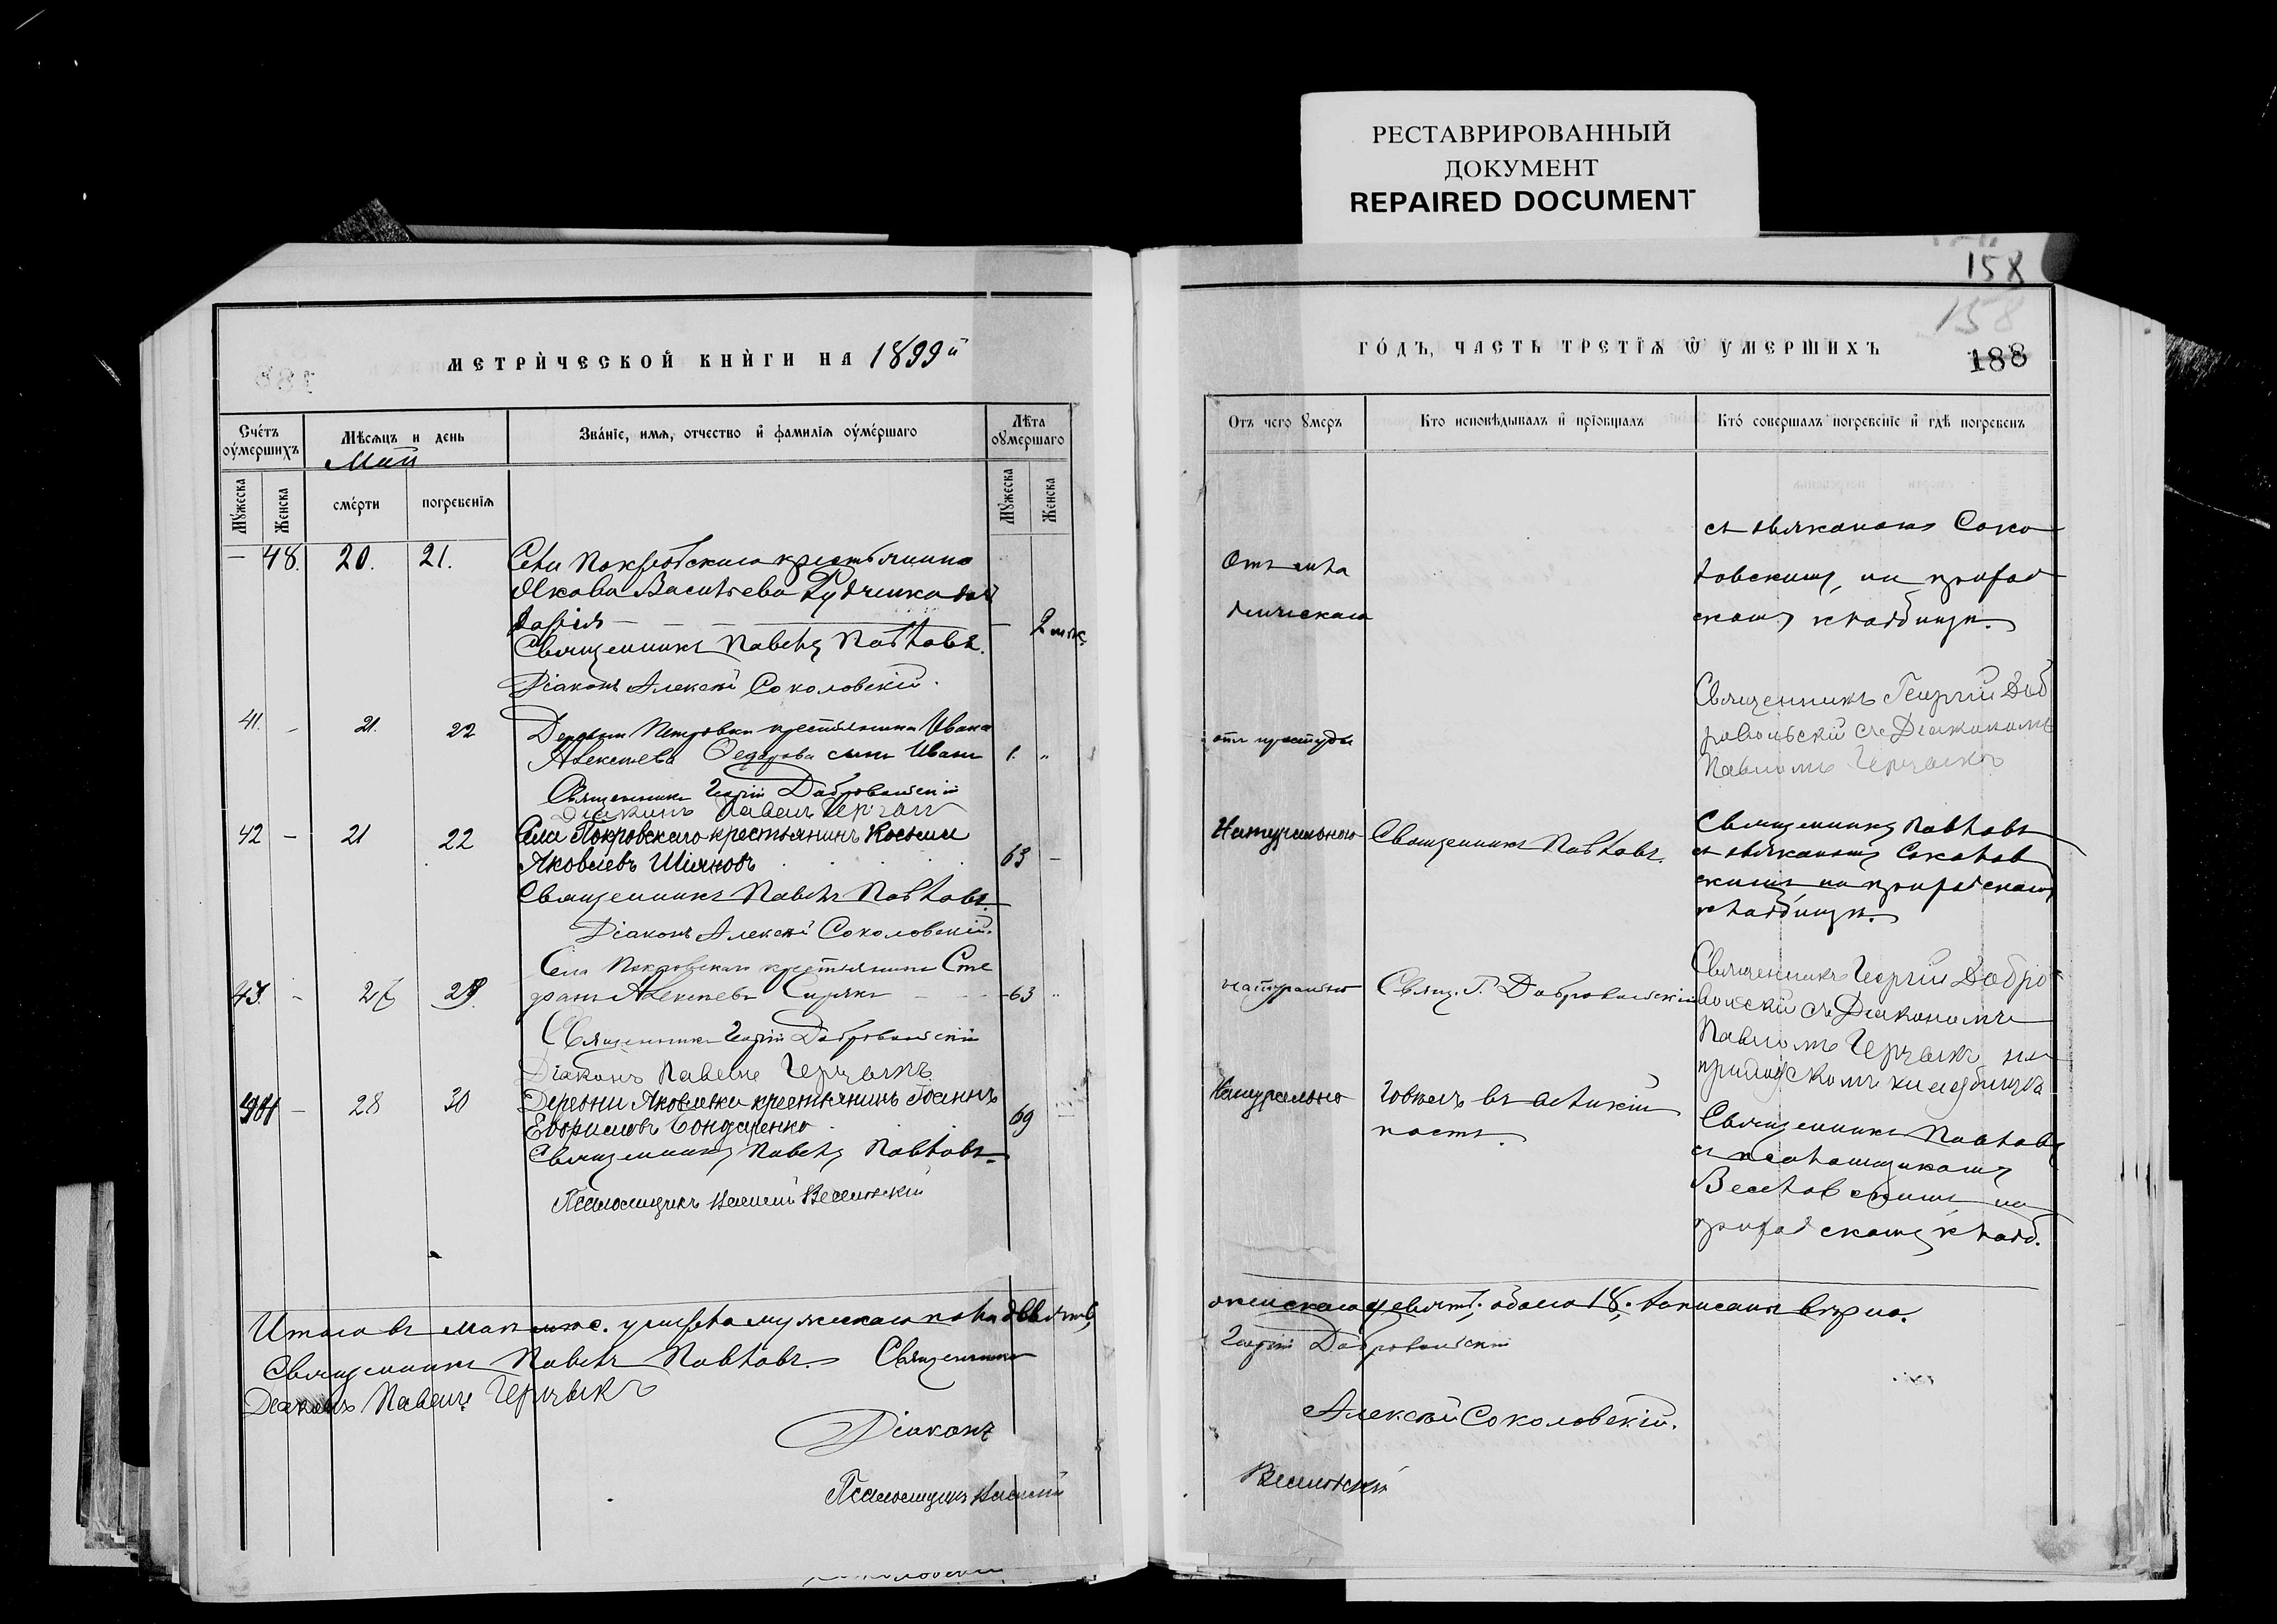 РЕСТАВРИРОВАННЫЙ
ДОКУМЕНТ
REPAIRED DOCUMENT
158
158
188
МЕТРИ́ЧЕСКОЙ КНИ́ГИ НА 1899й
ГО́ДЪ, ЧАСТЬ ТРЕТІѦ Ѿ УМЕРШИХЪ
Сче́тъ оумершихъ
Мѣсѧцъ и день
Май
Зва́ніе, имѧ, отчество и фамиліѧ оуме́ршаго
Лѣта оумершаго
Мужеска
Женска
смерти
погребеніѧ
Мужеска
Женска
Отъ чего умеръ
Кто исповѣдывалъ и пріобщалъ
Кто́ совершалъ погребеніе и гдѣ погребенъ
— 48. 20. 21. Села Покровскаго крестьянина
Якова Васильева Рудченка дочь
Дарія — — — — 2 мѣс.
Священникъ Павелъ Павловъ.
Діаконъ Алексѣй Соколовскій.
съ діакономъ Соко
ловскимъ, на приход
скомъ кладбищѣ.
41. - 21. 22 Деревни Петровки крестьянина Ивана
Алексѣева Федорова сынъ Иванъ 1. "
Священникъ Георгій Добровольскій
Діаконъ Павелъ
отъ простуды
Священникъ Георгій Доб
ровольскій съ Діакономъ
Павломъ
42 — 21 22 Села Покровскаго крестьянинъ Косьма
Яковлевъ 63 —
Священникъ Павелъ Павловъ.
Діаконъ Алексѣй Соколовскій.
Натурально Священникъ Павловъ.
Священникъ Павловъ
съ діакономъ Соколов
скимъ на приходскомъ
кладбищѣ.
43. - 27 29. Села Покровскаго крестьянинъ Сте
фанъ Алексѣевъ — — 63 "
Священникъ Георгій Добровольскій
Діаконъ Павелъ
натурально Свящ. Г. Добровольскій
Священникъ Георгій Добро
вольскій съ Діакономъ
Павломъ на
приходскомъ кладбищѣ
44 — 28 30 Деревни Яковлевки крестьянинъ Іоаннъ
Бондаренко 69 —
Священникъ Павелъ Павловъ.
Псаломщикъ Василій Веселовскій
Натурально Говѣлъ въ Великій
постъ.
Священникъ Павловъ
съ псаломщикомъ
Веселовскимъ на
приходскомъ кладб.
Итого въ маѣ мѣс. умерло мужескаго пола девять,
женскаго девять, обоего 18. Записано вѣрно.
Священникъ Павелъ Павловъ. Священникъ Георгій Добровольскій
Діаконъ Павелъ
Діаконъ Алексѣй Соколовскій.
Псаломщикъ Василій Веселовскій